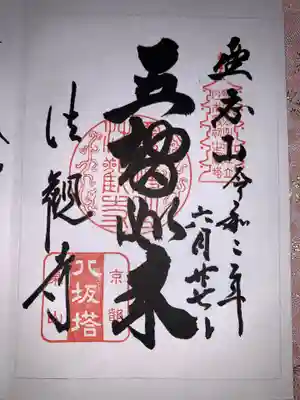 霊応山 令和二年
六月廿七日
五智如来
法観寺
京都
八坂塔
東山